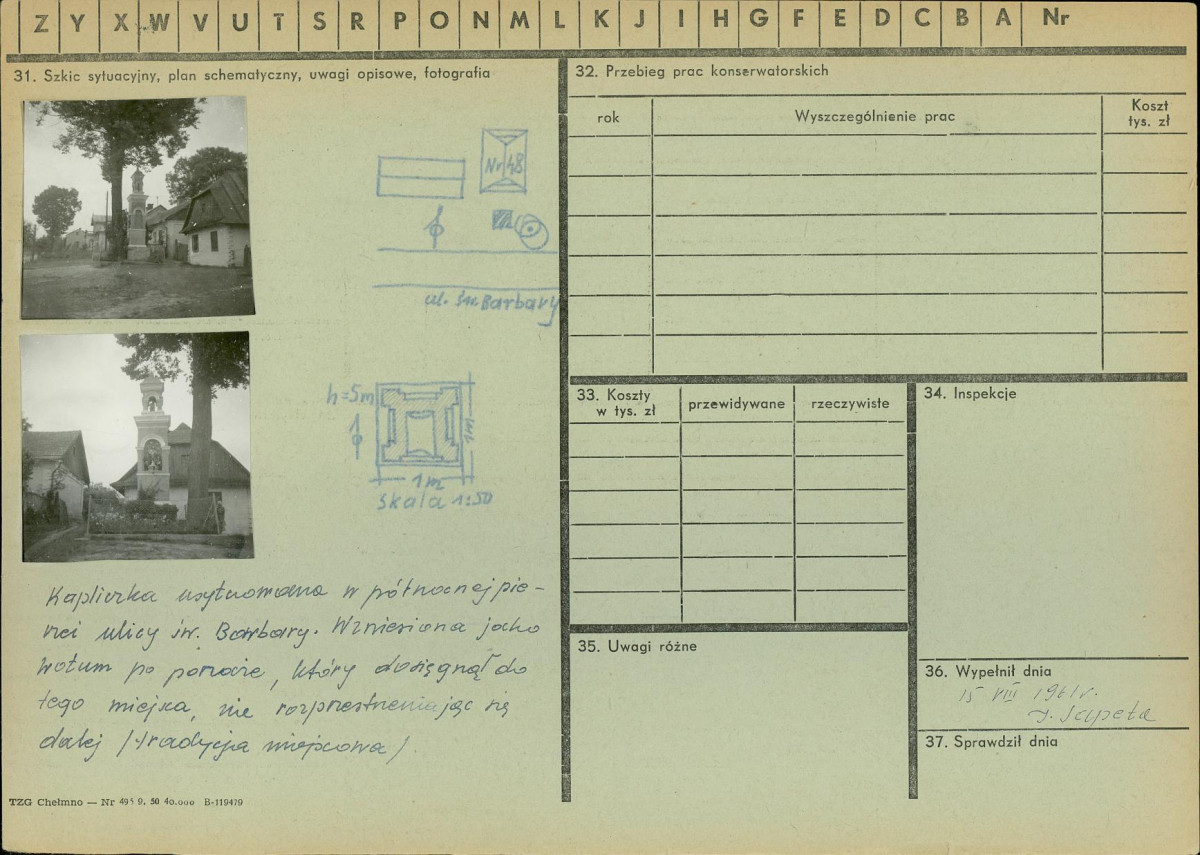 Z Y X W V U T S R P O N M L K J I H G F E D C B A Nr
31. Szkic sytuacyjny, plan schematyczny, uwagi opisowe, fotografia
Nr 48
ul. św. Barbary
h=5m
1m
1m
skala 1:50
Kapliczka usytuowana w północnej pie-
rzei ulicy św. Barbary. Wzniesiona jako
wotum po pożarze, który dosięgnął do
tego miejsca, nie rozprzestrzeniając się
dalej /tradycja miejscowa/.
TZG Chełmno — Nr 495 9. 50 40.000 B-119479
32. Przebieg prac konserwatorskich
rok
Wyszczególnienie prac
Koszt
tys. zł
33. Koszty
w tys. zł
przewidywane
rzeczywiste
34. Inspekcje
35. Uwagi różne
36. Wypełnił dnia
15 VIII 1961r.
J. Sapeta
37. Sprawdził dnia